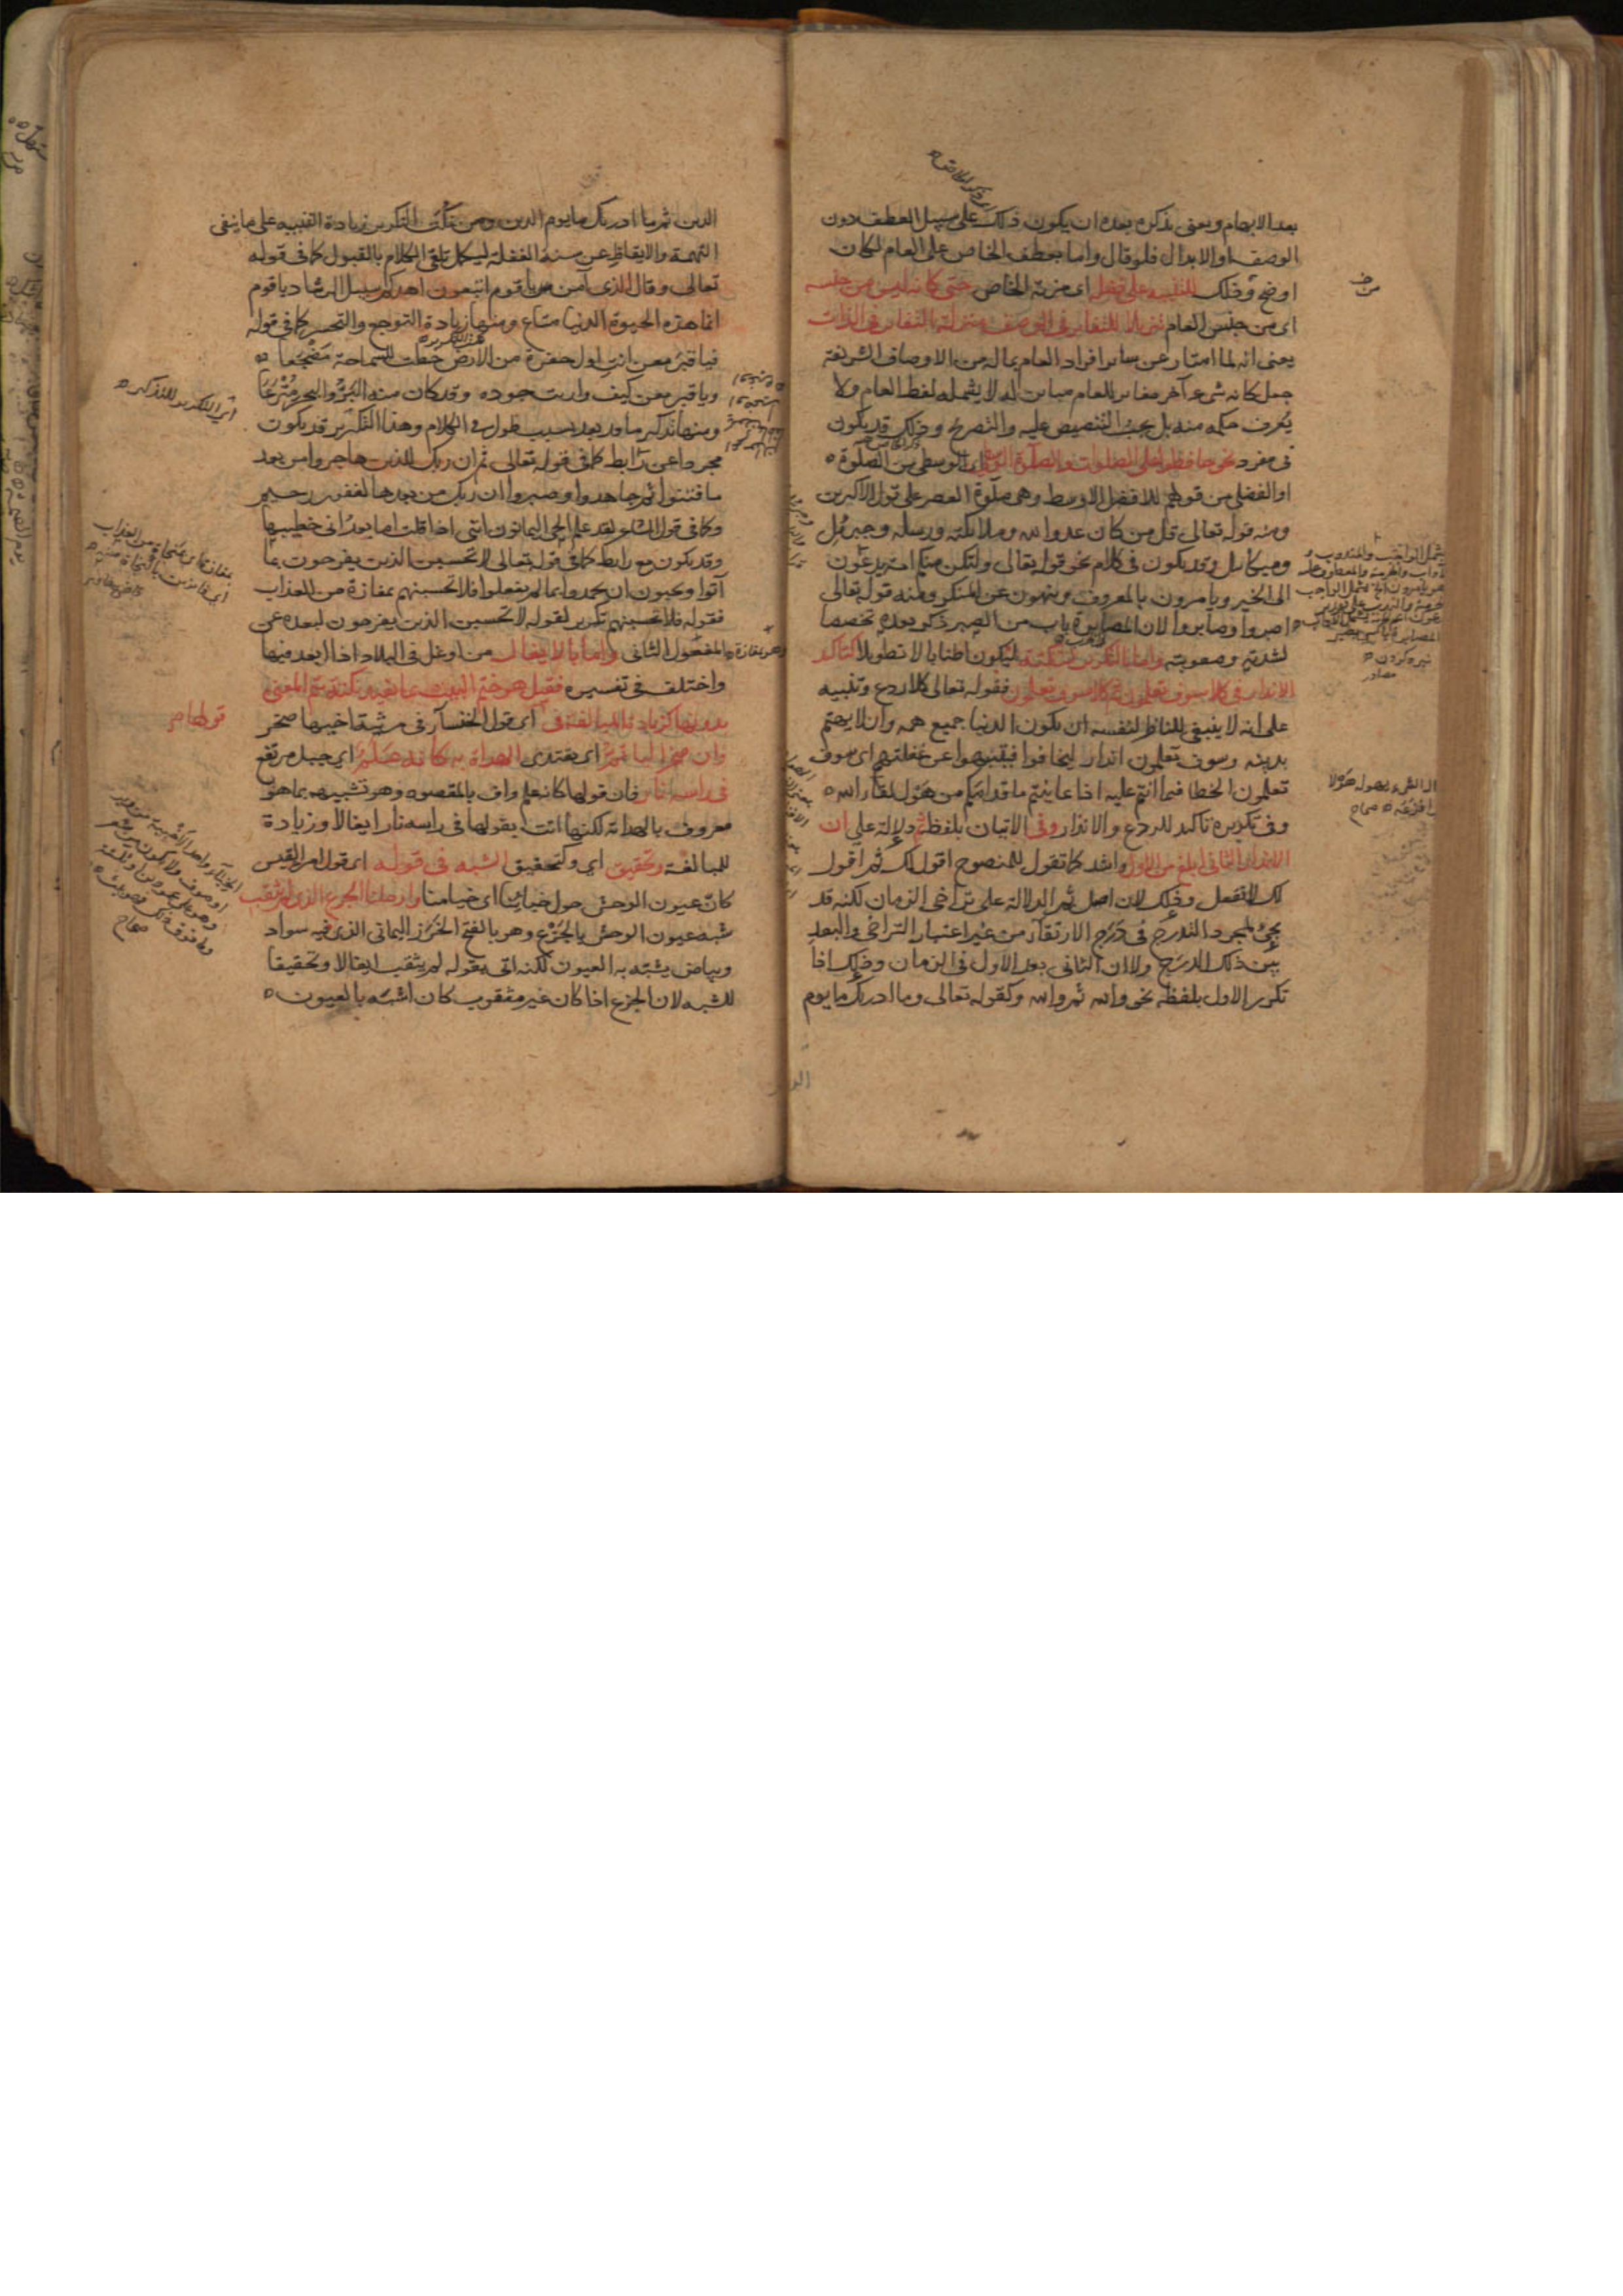 بعد الابهام ويعنى بذكره بعده ان يكون ذلك على سبيل العطف دون
الوصف او الابدال فلو قال واما بعطف الخاص على العام لكان
اوضح وذلك للتنبيه على فضله اى مزية الخاص حتى كانه ليس من جنسه
اى من جنس العام تنزيلا للتغاير فى الوصف منزلة التغاير فى الذات
يعنى انه لما امتاز عن سائر افراد العام بماله من الاوصاف الشريفة
جعل كانه شىء آخر مغاير للعام مباين له لا يشمله لفظ العام ولا
يعرف حكمه منه بل يجب التنصيص عليه والتصريح وذلك قد يكون
فى مفرد نحو حافظوا على الصلوات والصلوة الوسطى اى الوسطى من الصلوة
او الفضلى من قولهم للافضل الاوسط وهى صلوة العصر على قول الاكثرين
ومنه قوله تعالى قل من كان عدوا لله وملائكته ورسله وجبريل
وميكايل وقد يكون فى كلام نحو قوله تعالى ولتكن منكم امة يدعون
الى الخير ويامرون بالمعروف وينهون عن المنكر ومنه قوله تعالى
اصبروا وصابروا لان المصابرة باب من الصبر ذكر بعده تخصصا
لشدته وصعوبته واما بالتكرير لنكتة ليكون اطنابا لا تطويلا كتاكيد
الانذار فى كلا سوف تعلمون ثم كلا سوف تعلمون فقوله تعالى كلا ردع وتنبيه
على انه لا ينبغى للناظر لنفسه ان يكون الدنيا جميع همه وان لا يهتم
بدينه وسوف تعلمون انذار ليخافوا فينتبهوا عن غفلتهم اى سوف
تعلمون الخطا فيما انتم عليه اذا عاينتم ما قدامكم من هول لقاء الله
وفى تكريره تاكيد للردع والانذار وفى الاتيان بلفظ ثم دلالة على ان
الانذار الثانى ابلغ من الاول واشد كما تقول للمنصوح اقول لك ثم اقول
لك لا تفعل وذلك لان اصل ثم الدلالة على تراخى الزمان لكنه قد
يجئ لمجرد التدرج فى درج الارتقاء من غير اعتبار التراخى والبعد
بين ذلك الدرج ولا ان الثانى بعد الاول فى الزمان وذلك اذا
تكرر الاول بلفظه نحو والله ثم والله وكقوله تعالى وما ادريك ما يوم
الدين ثم ما ادريك ما يوم الدين ومن نكت التكرير زيادة التنبيه على ما ينفى
التهمة والايقاظ عن سنة الغفلة ليكمل تلقى الكلام بالقبول كما فى قوله
تعالى وقال الذى آمن يا قوم اتبعون اهدكم سبيل الرشاد يا قوم
انما هذه الحيوة الدنيا متاع ومنها زيادة التوجع والتحسر كما فى قوله
فيا قبر معن انت اول حفرة من الارض خطت للسماحة مضجعا
ويا قبر معن كيف واريت جوده وقد كان منه البر والبحر مترعا
ومنها تذكير ما قد بعد بسبب طول فى الكلام وهذا التكرير قد يكون
مجردا عن رابط كما فى قوله تعالى ثم ان ربك للذين هاجروا من بعد
ما فتنوا ثم جاهدوا وصبروا ان ربك من بعدها لغفور رحيم
وكما فى قول الشاعر لقد علم الحى اليمانون اننى اذا قلت اما بعد انى خطيبها
وقد يكون مع رابط كما فى قوله تعالى لا تحسبن الذين يفرحون بما
آتوا ويحبون ان يحمدوا بما لم يفعلوا فلا تحسبنهم بمفازة من العذاب
فقوله فلا تحسبنهم تكرير لقوله لا تحسبن الذين يفرحون لبعده عن
المفعول الثانى واما بالايغال من اوغل فى البلاد اذا ابعد فيها
واختلف فى تفسيره فقيل هو ختم البيت بما يفيد نكتة يتم المعنى
بدونها كزيادة المبالغة فى اى قول الخنساء فى مرثية اخيها صخر
وان صخرا لتاتم اى يقتدى الهداة به كانه علم اى جبل مرتفع
فى راسه نار فان قولها كانه علم واف بالمقصود وهو تشبيهه بما هو
معروف بالهداية لكنها اتت بقولها فى راسه نار ايغالا وزيادة
للمبالغة وتحقيق اى وكتحقيق التشبيه فى قوله اى قول امرء القيس
كان عيون الوحش حول خبائنا اى خيامنا وارحلنا الجزع الذى لم يثقب
شبه عيون الوحش بالجزع وهو بالفتح الخرز اليمانى الذى فيه سواد
وبياض يشبه به العيون لكنه اتى بقوله لم يثقب ايغالا وتحقيقا
للشبه لان الجزع اذا كان غير مثقوب كان اشبه بالعيون
اى التكرير للتذكير
قولها